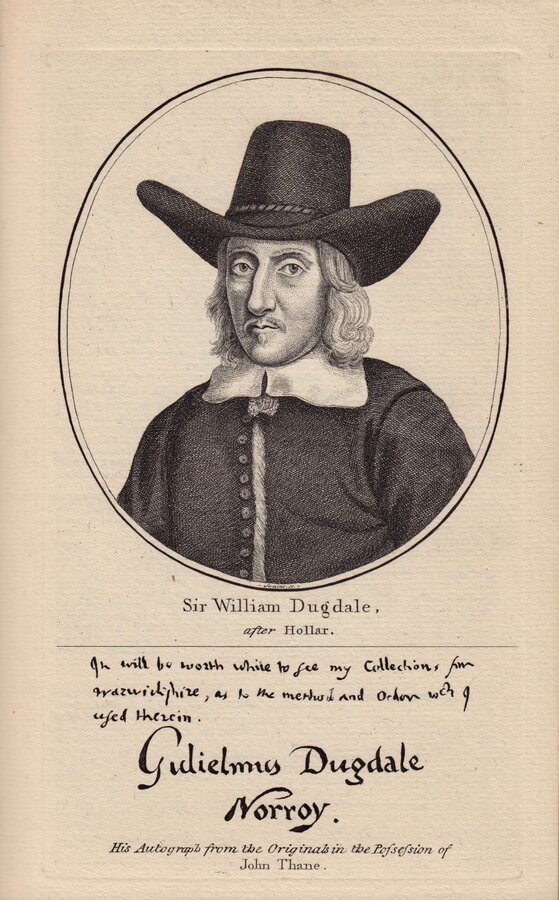 Sir William Dugdale,
after Hollar.
It will be worth while to see my Collections for
Warwickshire, as to the method and Order wch I
used therein.
Gulielmus Dugdale
Norroy.
His Autograph from the Originals in the Possession of
John Thane.